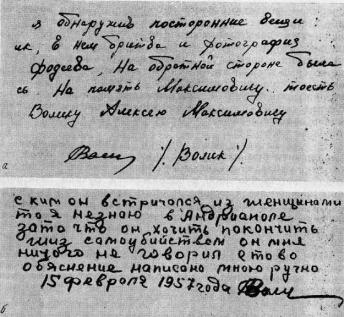 я обнаружив посторонние вещи
ик, в нем бритва и фотография
фодеева, На обратной стороне была
сь. На память Максимовичу. тоесть
Волику Алексею Максимовичу
/. Волик /.
а
с ким он встричолся из женщинами
то я незною в Андрианопе
зато что он хочить покончить
жиз самоубийством он мня
ничого не говорил с тово
обяснение написоно мною ручно
15 февроля 1957 года
б